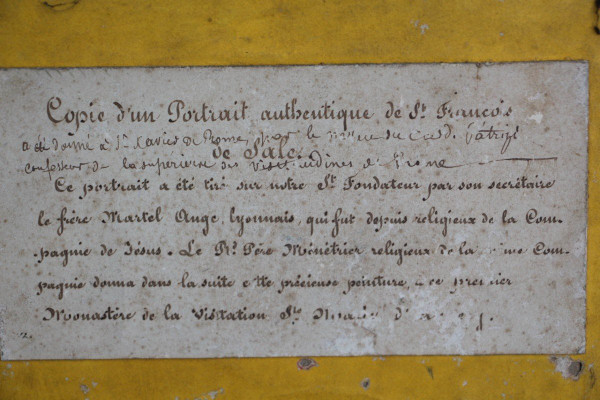 Copie d'un Portrait authentique de St. François
a été donné à St. Xavier de Rome, par le du Card. Patrizi
de Sale
confesseur, de la supérieure des Visitandines de Rome
Ce portrait a été tiré sur notre St. Fondateur par son secrétaire
le frère Martel Ange, Lyonnais, qui fut depuis religieux de la Com-
pagnie de Jésus. Le Rd. Père Ménétrier religieux de la même Com-
pagnie donna dans la suite cette précieuse peinture, à ce premier
Monastère de la Visitation Ste Marie